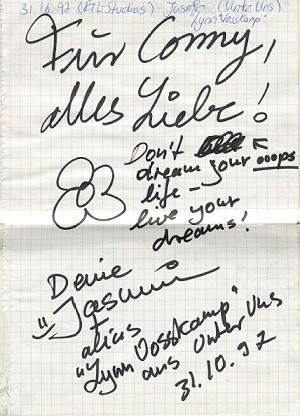 31.10.97 (RTL-Studios) Jasmin (Unter Uns)
Lynn Vosskamp
Für Conny,
alles Liebe!
Don't
dream your ooops
life –
live your
dreams!
Deine
"Jasmin
+
alias
"Lynn Vosskamp"
aus Unter Uns
31.10.97